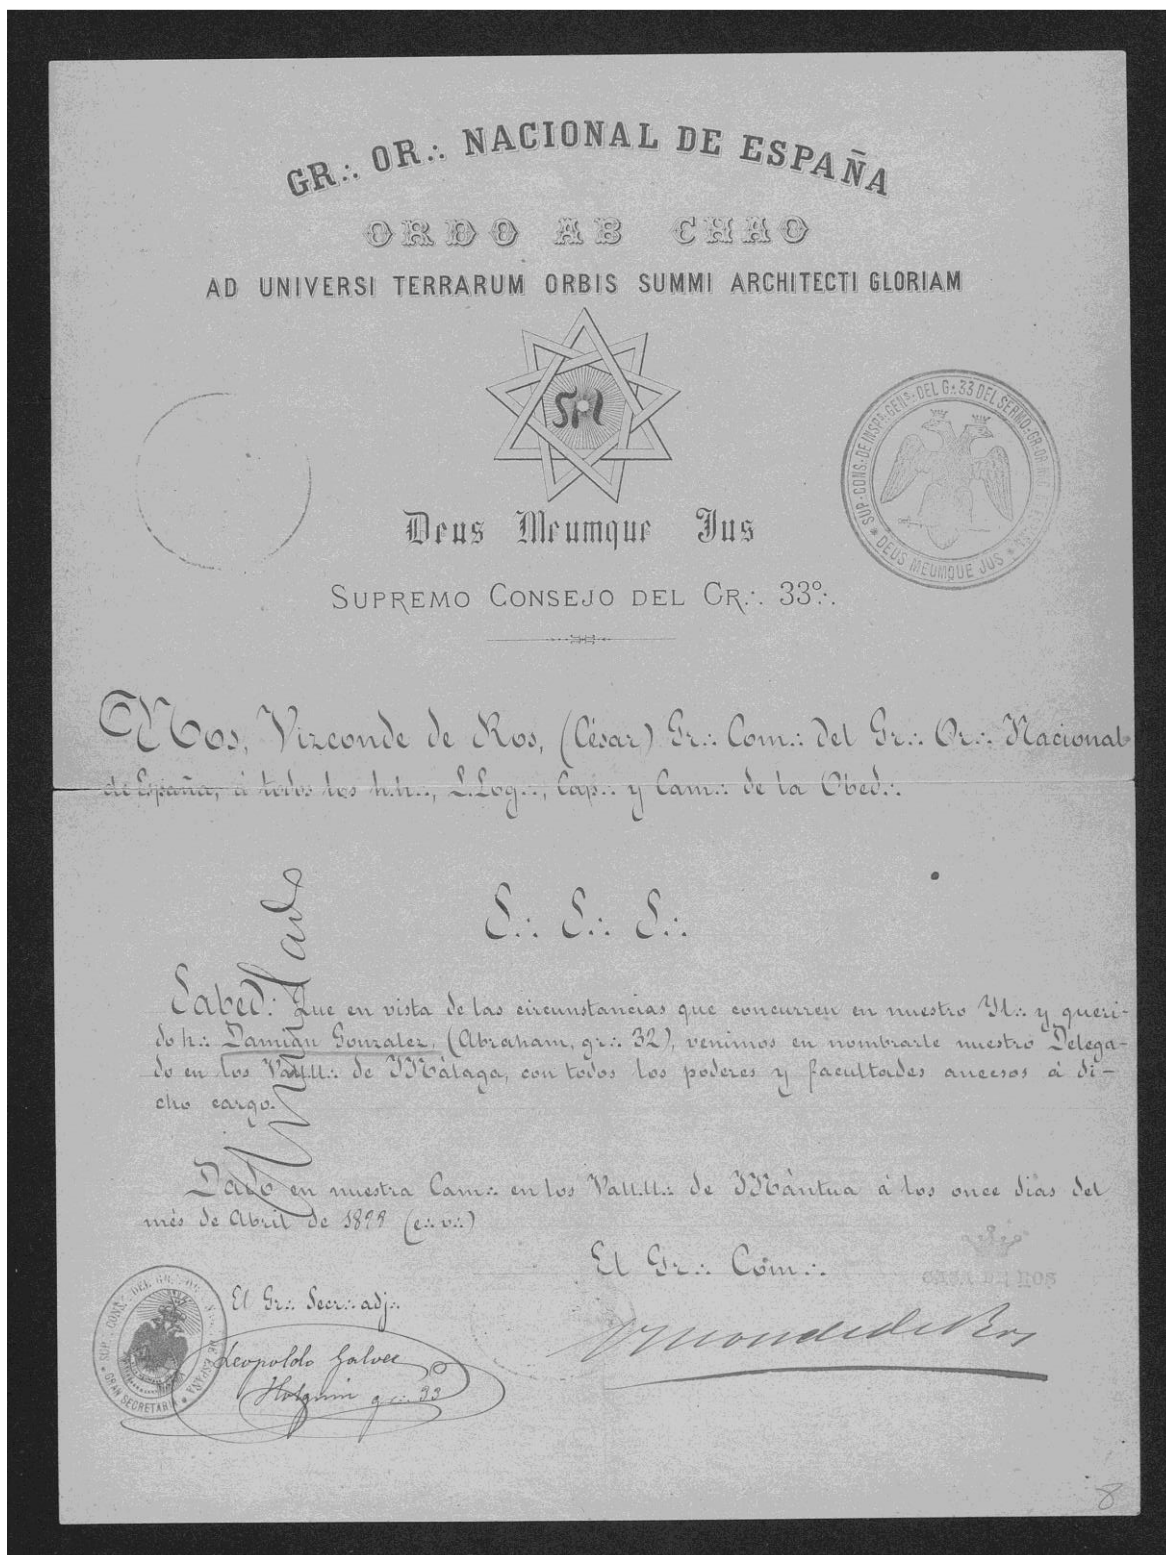 GR∴ OR∴ NACIONAL DE ESPAÑA
ORDO AB CHAO
AD UNIVERSI TERRARUM ORBIS SUMMI ARCHITECTI GLORIAM
Deus Meumque Jus
SUP∴ CONS∴ DE INSP∴ GEN∴ DEL G∴ 33 DEL SERMO∴ GR∴ OR∴
DEUS MEUMQUE JUS
SUPREMO CONSEJO DEL GR∴ 33º∴
Nos, Vizconde de Ros, (César) Gr∴ Com∴ del Gr∴ Or∴ Nacional
de España, á todos los h.h∴, L.Log∴, Cap∴ y Cam∴ de la Obed∴
S∴ S∴ S∴
Sabed: Que en vista de las circunstancias que concurren en nuestro Il∴ y queri-
do h∴ Damián Gonzalez, (Abraham, gr∴ 32), venimos en nombrarle nuestro Delega-
do en los Vall.ll∴ de Málaga, con todos los poderes y facultades anecsos á di-
cho cargo.
Anulado
Dado en nuestra Cam∴ en los Vall.ll∴ de Mántua á los once dias del
més de Abril de 1899 (e∴ v∴)
El Gr∴ Com∴
CASA DE ROS
El Gr∴ Secr∴ adj∴
Vizconde de Ros
SUP∴ CONS∴ DEL GR∴ OR∴ N∴ DE ESPAÑA
GRAN SECRETARIA
Leopoldo Galvez
Holguin gr∴ 33
8